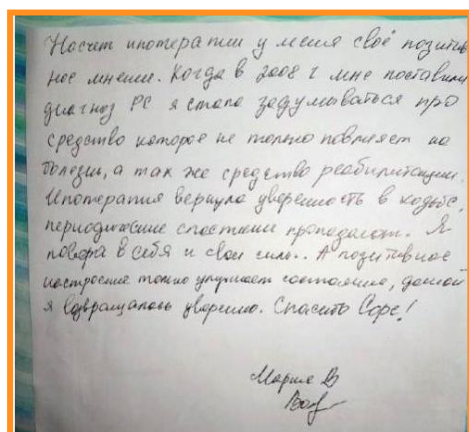 Насчет ипотерапии у меня своё позитив
ное мнение. Когда в 2008 г мне поставили
диагноз РС я стала задумываться про
средство которое не только повлияет на
болезнь, а так же средство реабилитации.
Ипотерапия вернула уверенность в ходьбе,
периодические спастики пропадают. Я
повера в себя и свои силы. А позитивное
настроение только улучшает состояние, домой
я возвращалась уверенно. Спасибо
Мария В